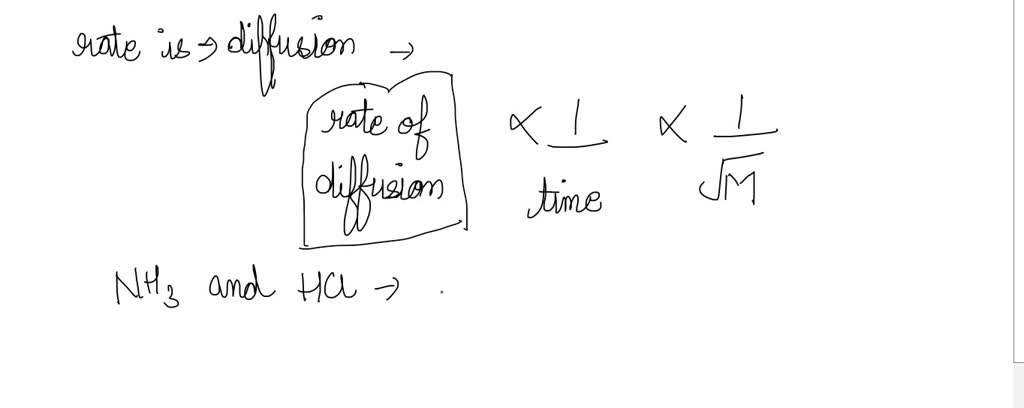 rate is → diffusion →
rate of diffusion ∝ 1/time ∝ 1/√M
NH₃ and HCl →